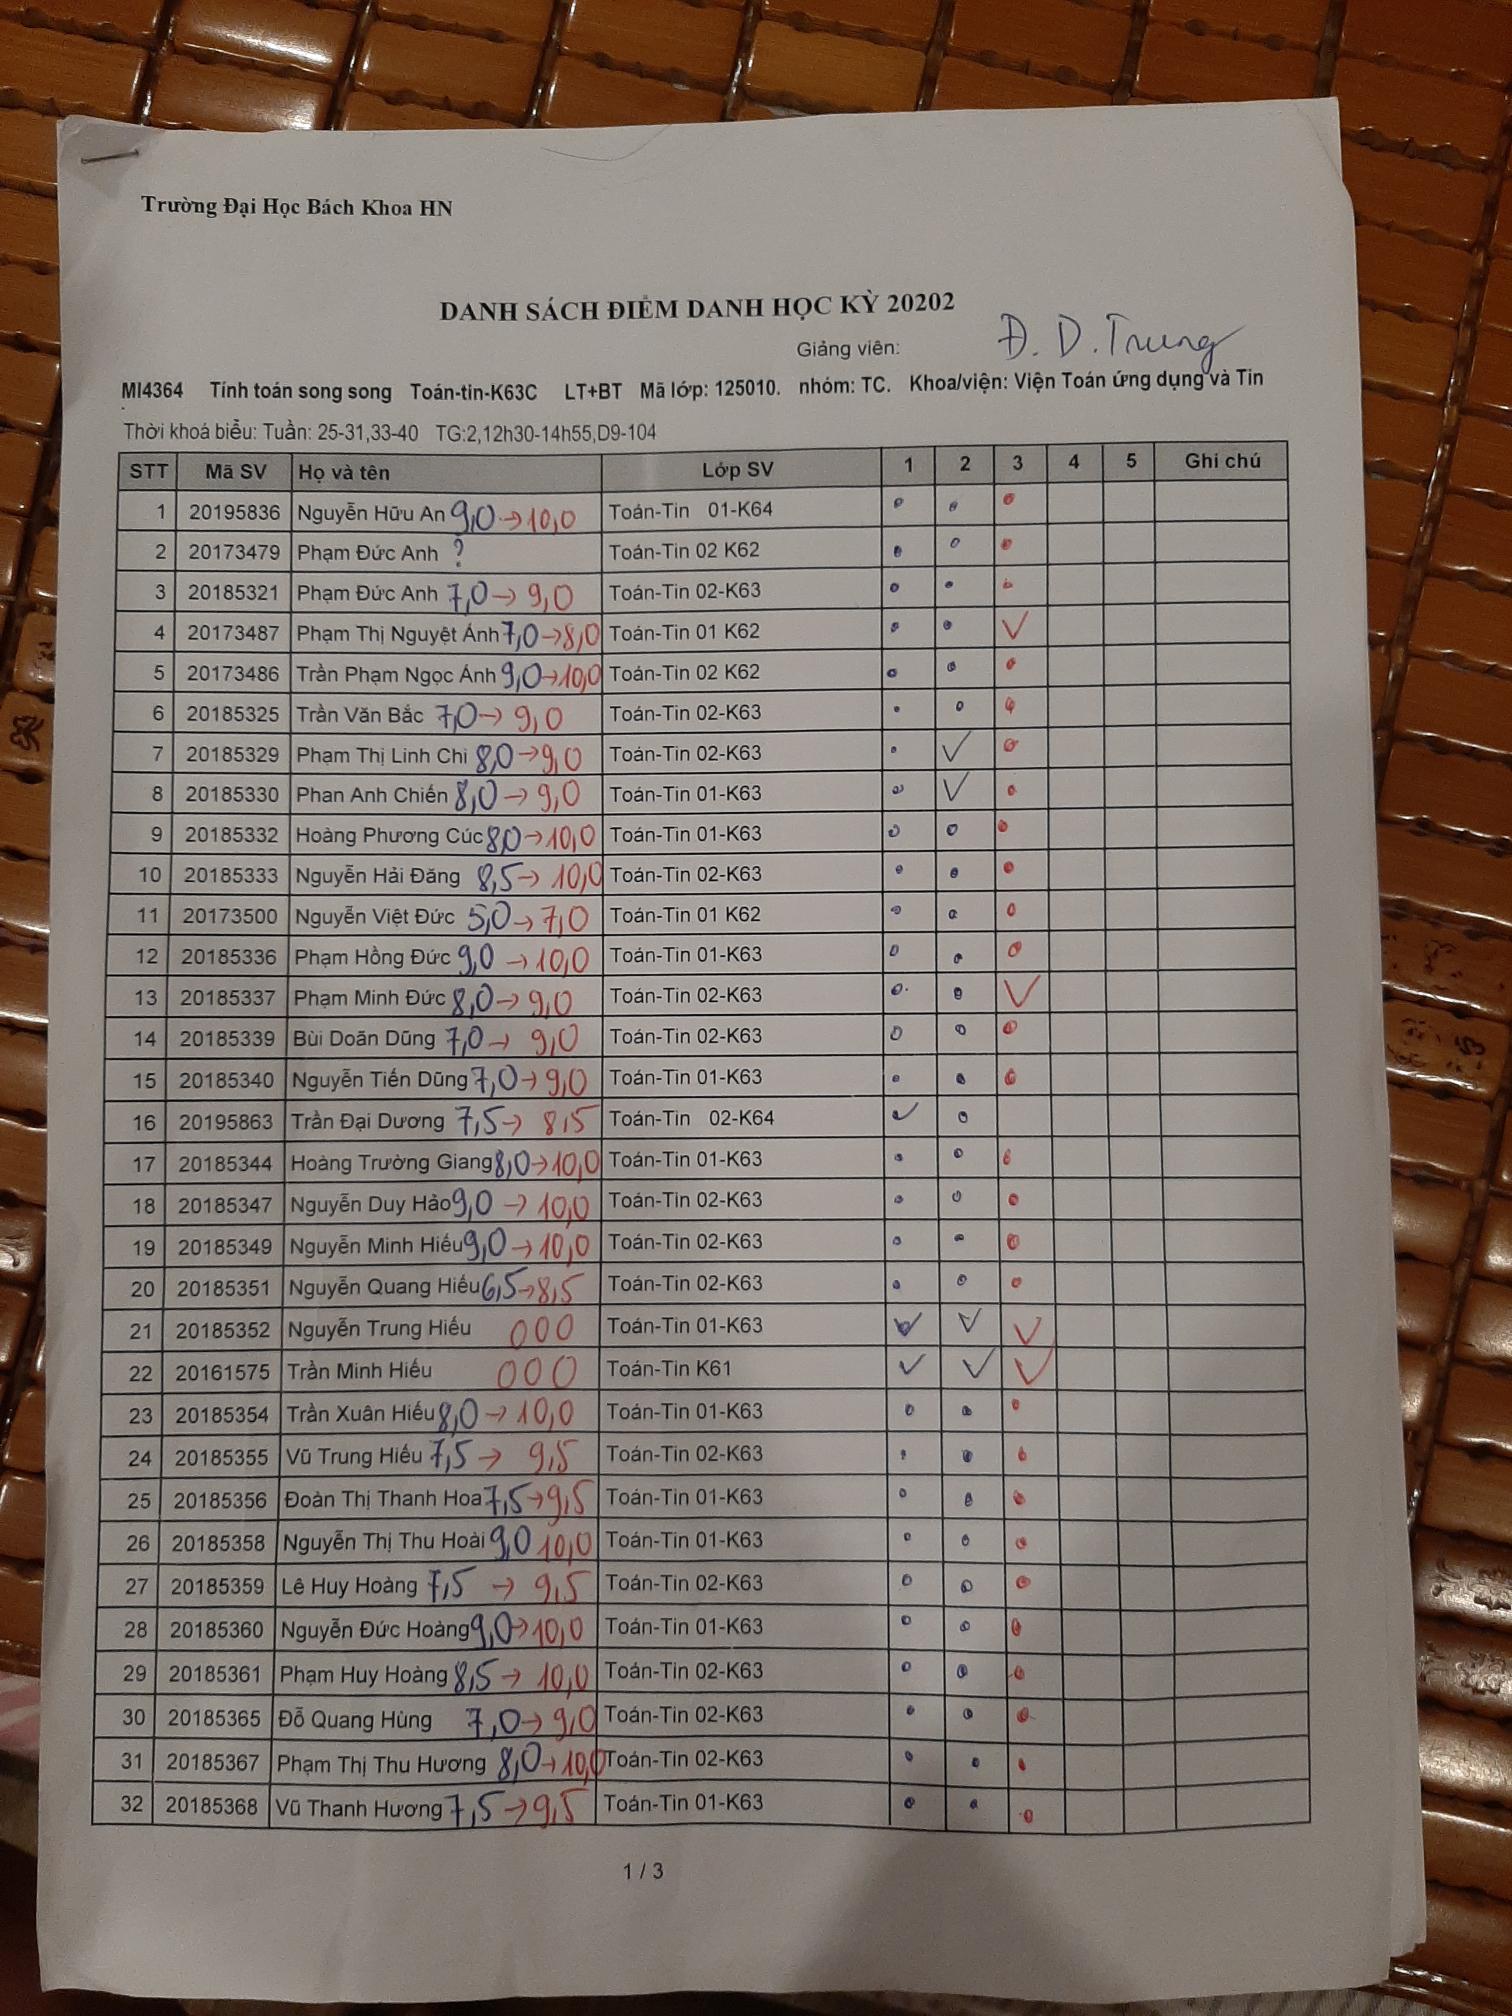 Trường Đại Học Bách Khoa HN
DANH SÁCH ĐIỂM DANH HỌC KỲ 20202
Giảng viên: Đ. D. Trung
MI4364 Tính toán song song Toán-tin-K63C LT+BT Mã lớp: 125010. nhóm: TC. Khoa/viện: Viện Toán ứng dụng và Tin
Thời khoá biểu: Tuần: 25-31,33-40 TG:2,12h30-14h55,D9-104
STT Mã SV Họ và tên Lớp SV 1 2 3 4 5 Ghi chú
1 20195836 Nguyễn Hữu An 9,0 → 10,0 Toán-Tin 01-K64
2 20173479 Phạm Đức Anh ? Toán-Tin 02 K62
3 20185321 Phạm Đức Anh 7,0 → 9,0 Toán-Tin 02-K63
4 20173487 Phạm Thị Nguyệt Ánh 7,0 → 8,0 Toán-Tin 01 K62 ✓
5 20173486 Trần Phạm Ngọc Ánh 9,0 → 10,0 Toán-Tin 02 K62
6 20185325 Trần Văn Bắc 7,0 → 9,0 Toán-Tin 02-K63
7 20185329 Phạm Thị Linh Chi 8,0 → 9,0 Toán-Tin 02-K63 ✓
8 20185330 Phan Anh Chiến 8,0 → 9,0 Toán-Tin 01-K63 ✓
9 20185332 Hoàng Phương Cúc 8,0 → 10,0 Toán-Tin 01-K63
10 20185333 Nguyễn Hải Đăng 8,5 → 10,0 Toán-Tin 02-K63
11 20173500 Nguyễn Việt Đức 5,0 → 7,0 Toán-Tin 01 K62
12 20185336 Phạm Hồng Đức 9,0 → 10,0 Toán-Tin 01-K63
13 20185337 Phạm Minh Đức 8,0 → 9,0 Toán-Tin 02-K63 ✓
14 20185339 Bùi Doãn Dũng 7,0 → 9,0 Toán-Tin 02-K63
15 20185340 Nguyễn Tiến Dũng 7,0 → 9,0 Toán-Tin 01-K63
16 20195863 Trần Đại Dương 7,5 → 8,5 Toán-Tin 02-K64 ✓
17 20185344 Hoàng Trường Giang 8,0 → 10,0 Toán-Tin 01-K63
18 20185347 Nguyễn Duy Hảo 9,0 → 10,0 Toán-Tin 02-K63
19 20185349 Nguyễn Minh Hiếu 9,0 → 10,0 Toán-Tin 02-K63
20 20185351 Nguyễn Quang Hiếu 6,5 → 8,5 Toán-Tin 02-K63
21 20185352 Nguyễn Trung Hiếu 000 Toán-Tin 01-K63 ✓ ✓ ✓
22 20161575 Trần Minh Hiếu 000 Toán-Tin K61 ✓ ✓ ✓
23 20185354 Trần Xuân Hiếu 8,0 → 10,0 Toán-Tin 01-K63
24 20185355 Vũ Trung Hiếu 7,5 → 9,5 Toán-Tin 02-K63
25 20185356 Đoàn Thị Thanh Hoa 7,5 → 9,5 Toán-Tin 01-K63
26 20185358 Nguyễn Thị Thu Hoài 9,0 10,0 Toán-Tin 01-K63
27 20185359 Lê Huy Hoàng 7,5 → 9,5 Toán-Tin 02-K63
28 20185360 Nguyễn Đức Hoàng 9,0 → 10,0 Toán-Tin 01-K63
29 20185361 Phạm Huy Hoàng 8,5 → 10,0 Toán-Tin 02-K63
30 20185365 Đỗ Quang Hùng 7,0 → 9,0 Toán-Tin 02-K63
31 20185367 Phạm Thị Thu Hương 8,0 → 10,0 Toán-Tin 02-K63
32 20185368 Vũ Thanh Hương 7,5 → 9,5 Toán-Tin 01-K63
1 / 3